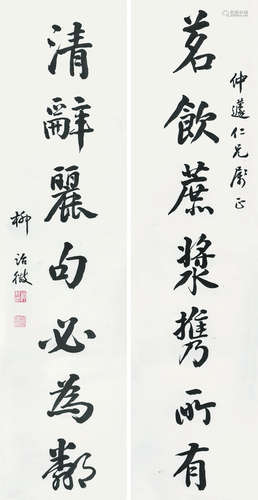 茗飲蔗漿攜所有
仲仁兄屬正
清辭麗句必為鄰
柳詒徵